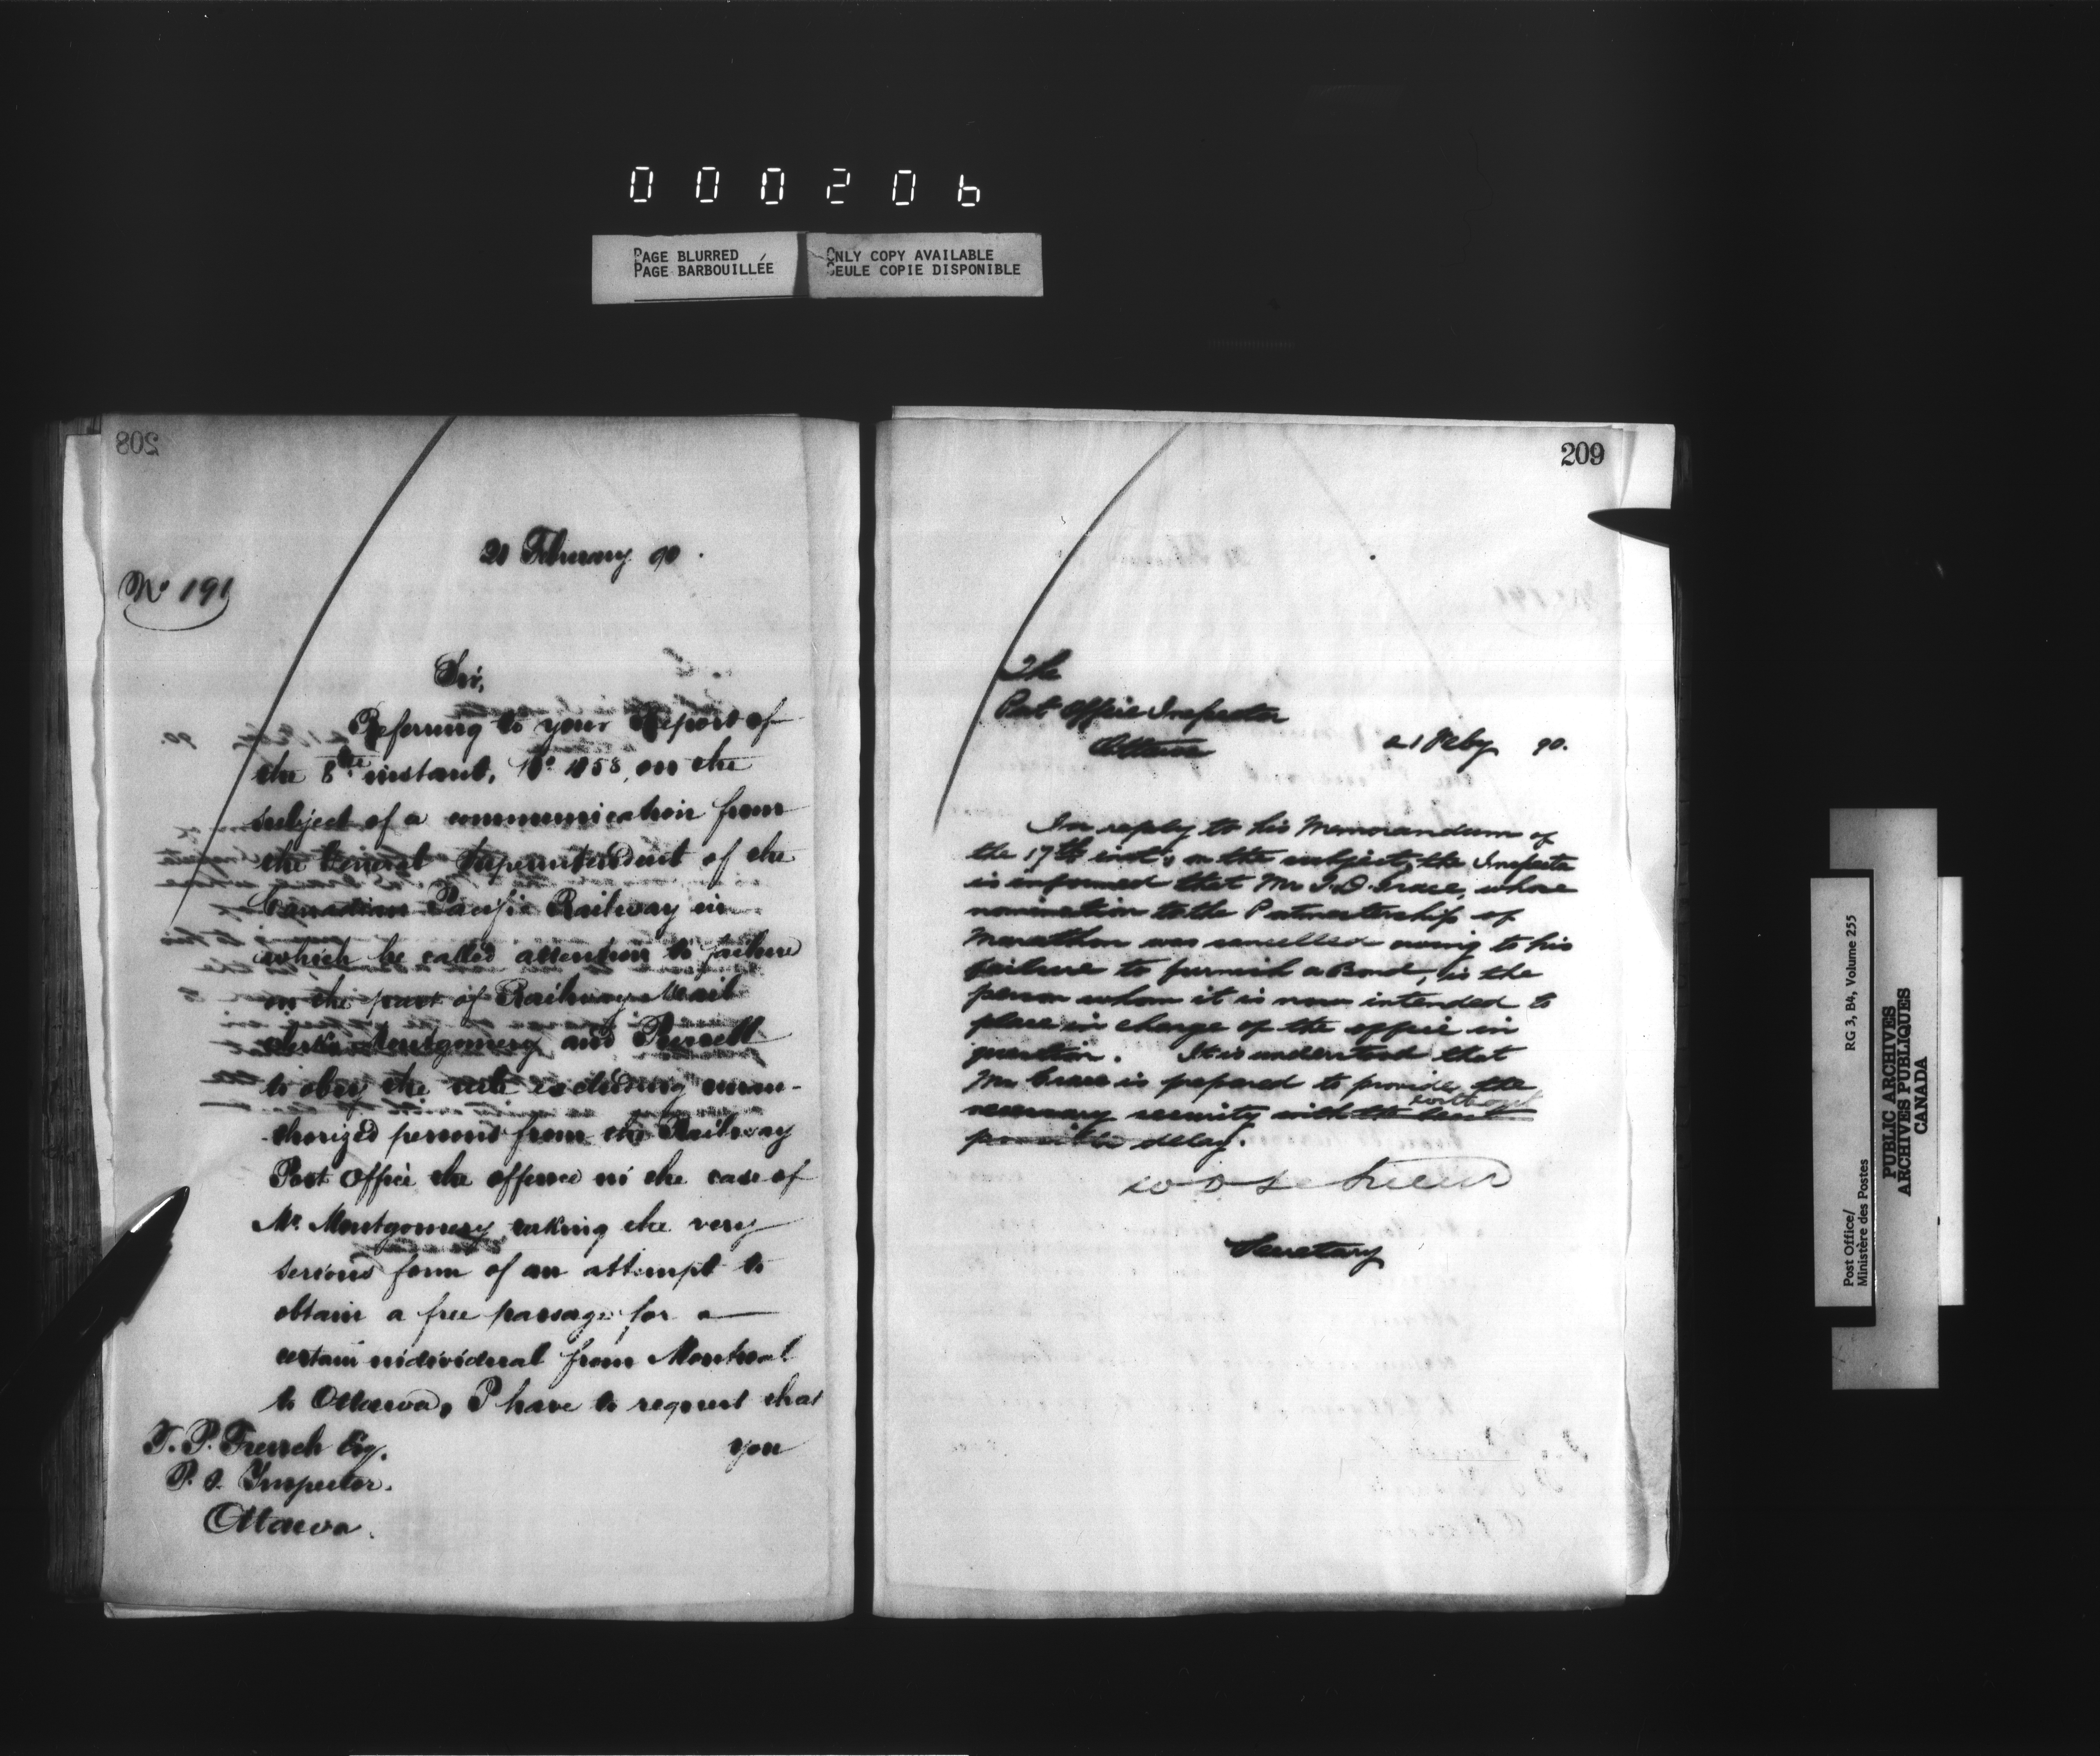 000206
PAGE BLURRED
PAGE BARBOUILLÉE
ONLY COPY AVAILABLE
SEULE COPIE DISPONIBLE
208
21 February 90.
No 191
Sir,
Referring to your Report of
the 8th instant, No 1058, on the
subject of a communication from
the General Superintendent of the
Canadian Pacific Railway in
which he called attention to failure
on the part of Railway Mail
clerks Montgomery and
to obey the rule excluding unau-
thorized persons from the Railway
Post Office the offence in the case of
Mr. Montgomery taking the very
serious form of an attempt to
obtain a free passage for a
certain individual from Montreal
to Ottawa, I have to request that
you
T. P. French Esq.
P. O. Inspector.
Ottawa.
209
The
Post Office Inspector
Ottawa
21 Feby 90.
In reply to his Memorandum of
the 17th inst, on the subject, the Inspector
is informed that Mr J. D. Grace, whose
nomination to the Postmastership of
Marathon was cancelled owing to his
failure to furnish a Bond, is the
person whom it is now intended to
place in charge of the office in
question. It is understood that
Mr Grace is prepared to provide the
necessary security with the least
without
possible delay.
Secretary
Post Office/
Ministère des Postes
RG 3, B4, Volume 255
PUBLIC ARCHIVES
ARCHIVES PUBLIQUES
CANADA